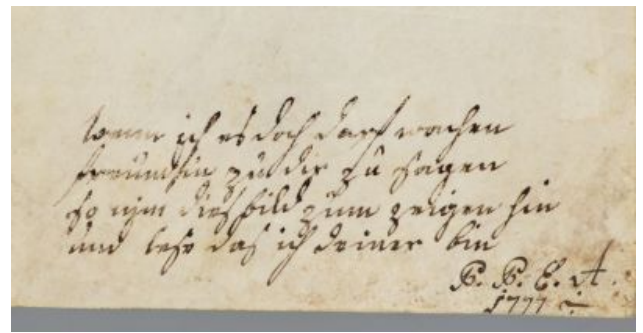 wenn ich es doch darf wachen
freundin zu dir zu sagen
so nim dies bild zum zeigen hin
und lese das ich deiner bin
B. B. E. A.
1777